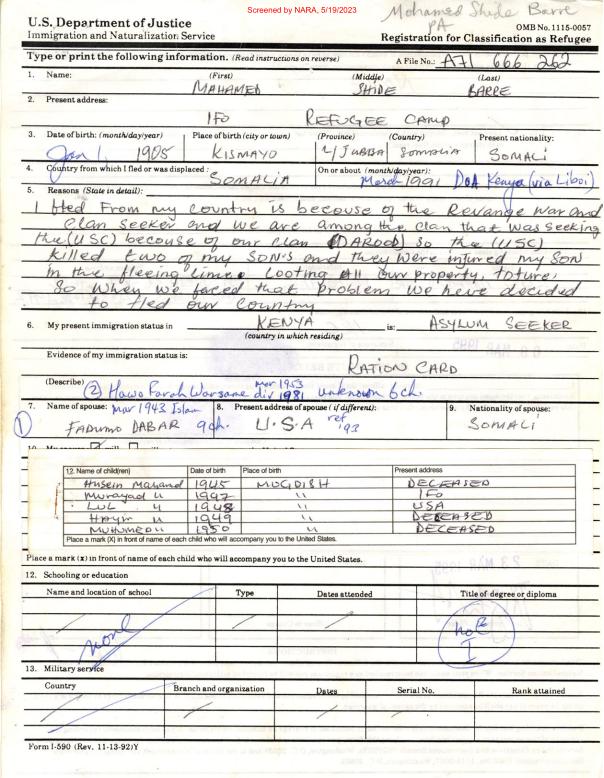 Screened by NARA, 5/19/2023
Mohamed Shide Barre
PA
U.S. Department of Justice
Immigration and Naturalization Service
OMB No. 1115-0057
Registration for Classification as Refugee
Type or print the following information. (Read instructions on reverse)
A File No.: A71 666 262
1. Name: (First) (Middle) (Last)
MAHAMED SHIDE BARRE
2. Present address:
IFO REFUGEE CAMP
3. Date of birth: (month/day/year) Place of birth (city or town) (Province) (Country) Present nationality:
Jan 1, 1905 KISMAYO L/JUBBA SOMALIA SOMALI
4. Country from which I fled or was displaced: On or about (month/day/year):
SOMALIA March/1991 DOA Kenya (via Liboi)
5. Reasons (State in detail):
I fled From my country is because of the Revange War and
Clan Seeker and we are among the clan that was seeking
the (USC) because of our clan (DAROD) so the (USC)
killed two of my SON's and they were injured my SON
in the fleeing time. Looting All our property, toture,
So when we faced that problem we have decided
to fled our Country
6. My present immigration status in KENYA is: ASYLUM SEEKER
(country in which residing)
Evidence of my immigration status is:
RATION CARD
(Describe) (2) Hawo Farah Warsame Mar 1953 div 1981 unknown 6ch.
7. Name of spouse: Mar 1943 Islam 8. Present address of spouse (if different): 9. Nationality of spouse:
(1) FADUMO DABAR 9ch. U.S.A ref '93 SOMALI
12. Name of child(ren) Date of birth Place of birth Present address
Husein Mahamed 1945 MUGDISH DECEASED
Murayad " 1947 " IFO
LUL " 1948 " USA
HAYM " 1949 " DECEASED
MUHUMED " 1950 " DECEASED
Place a mark (X) in front of name of each child who will accompany you to the United States.
Place a mark (x) in front of name of each child who will accompany you to the United States.
12. Schooling or education
Name and location of school Type Dates attended Title of degree or diploma
none
not E
I
13. Military service
Country Branch and organization Dates Serial No. Rank attained
Form I-590 (Rev. 11-13-92)Y